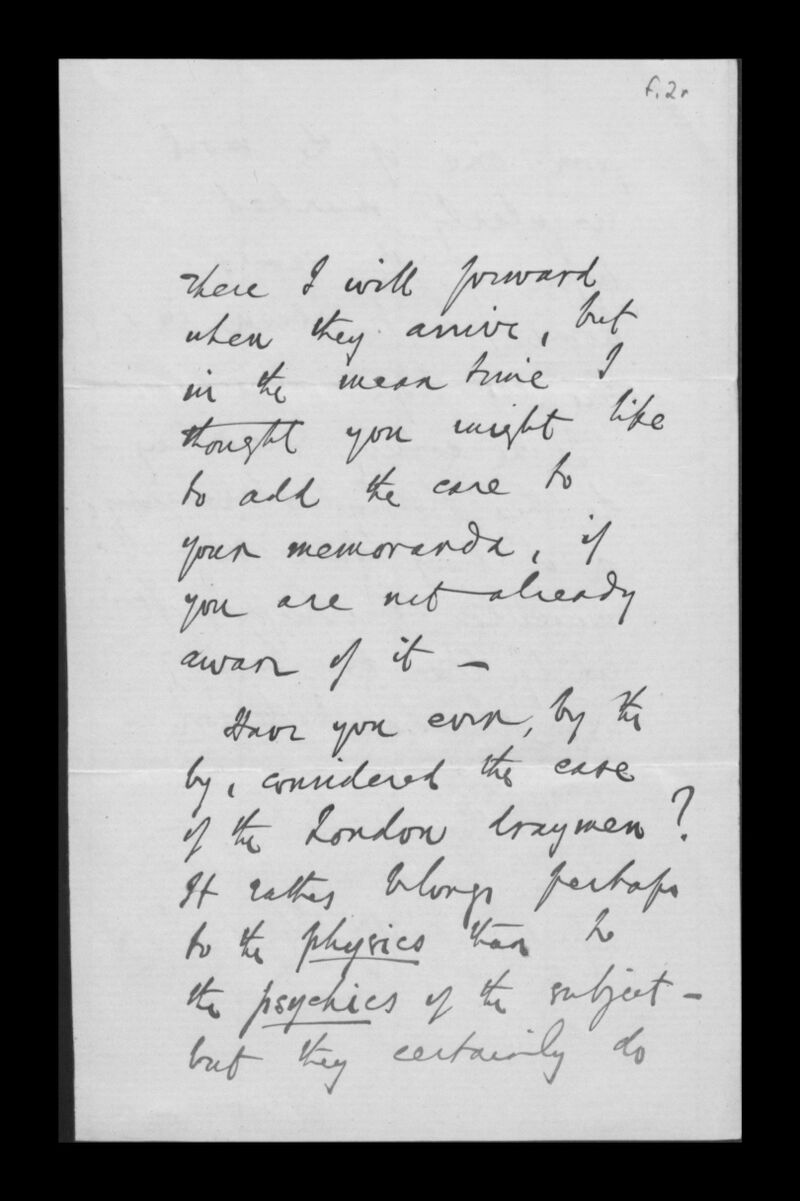 f.2r
these I will forward
when they arrive, but
in the mean time I
thought you might like
to add the case to
your memoranda, if
you are not already
aware of it —
Have you ever, by the
by, considered the case
of the London draymen?
It rather belongs perhaps
to the physics than to
the psychics of the subject —
but they certainly do